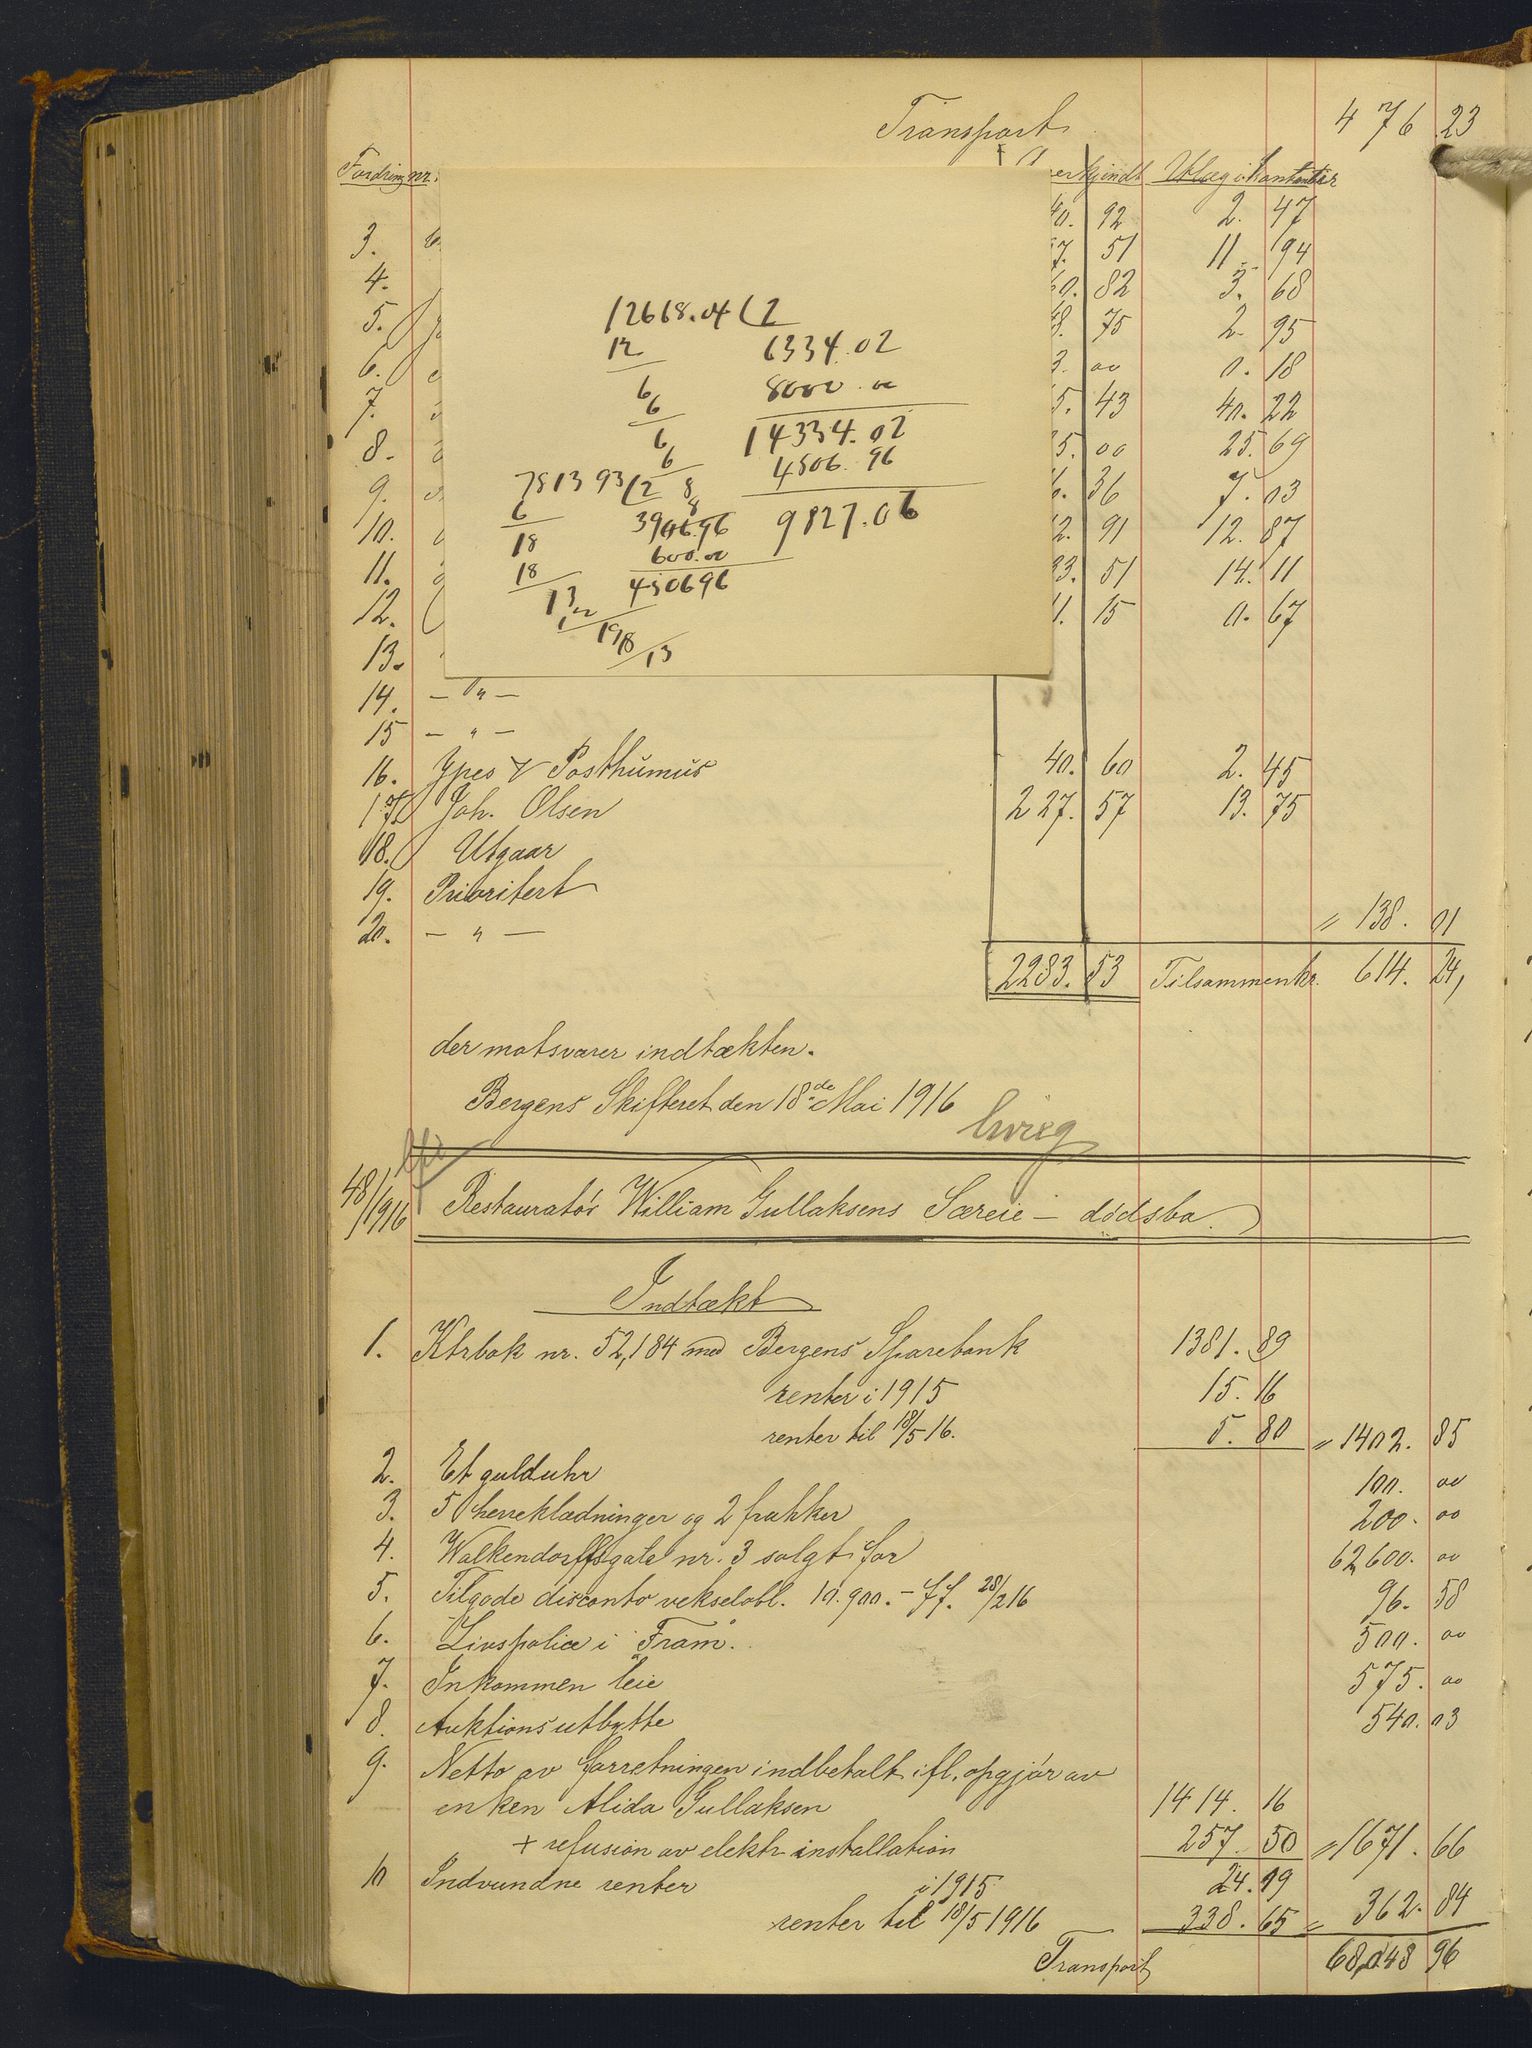 Transport 476 23
Fordring nr. erkjendt Utlæg i kontanter
40. 92 2. 47
3. 7. 51 11. 94
4. 60. 82 3. 68
5. 8. 75 2. 95
6. 3. 00 0. 18
7. 5. 43 40. 22
8. 5. 00 25. 69
9. 6. 36 7. 03
10. 2. 91 12. 87
11. 33. 51 14. 11
12. 1. 15 0. 67
13.
14. — " —
15 — " —
16. Ypes & Posthumus 40. 60 2. 45
17. Joh. Olsen 227. 57 13. 75
18. Utgaar
19. Prioritert
20. — " — = 138. 01
2283. 53 Tilsammen kr. 614. 24,
12668.04 (2
12 6334.02
6 8000.00
6
6 14334.02
6 4506.96
781393 (2 8
6 8
18 3906.96 9827.06
18 600.00
13 450696
12
19
18
13
der motsvarer indtækten.
Bergens Skifteret den 18de Mai 1916
48/1916 Restauratør William Gullaksens Særeie - dødsbo.
Indtækt
1. Ktrbok nr. 52,184 med Bergens Sparebank 1381. 89
renter i 1915 15. 16
renter til 18/5 16. 5. 80 = 1402. 85
2. Et gulduhr 100. 00
3. 5 herreklædninger og 2 frakker 200. 00
4. Walkendorffsgate nr. 3 solgt for 62,600. 00
5. Tilgode disconto vekselobl. 10.900.- ff. 28/2 16 96. 58
6. Livspolice i "Fram". 500. 00
7. Inkommen leie 575. 00
8. Auktionsutbytte 540. 03
9. Netto av forretningen indbetalt ifl. opgjør av
enken Alida Gullaksen 1414. 16
+ refusion av elektr. installation 257. 50 = 1671. 66
10 Indvundne renter i 1915 24. 19
renter til 18/5 1916 338. 65 = 362. 84
Transport 68,048 96